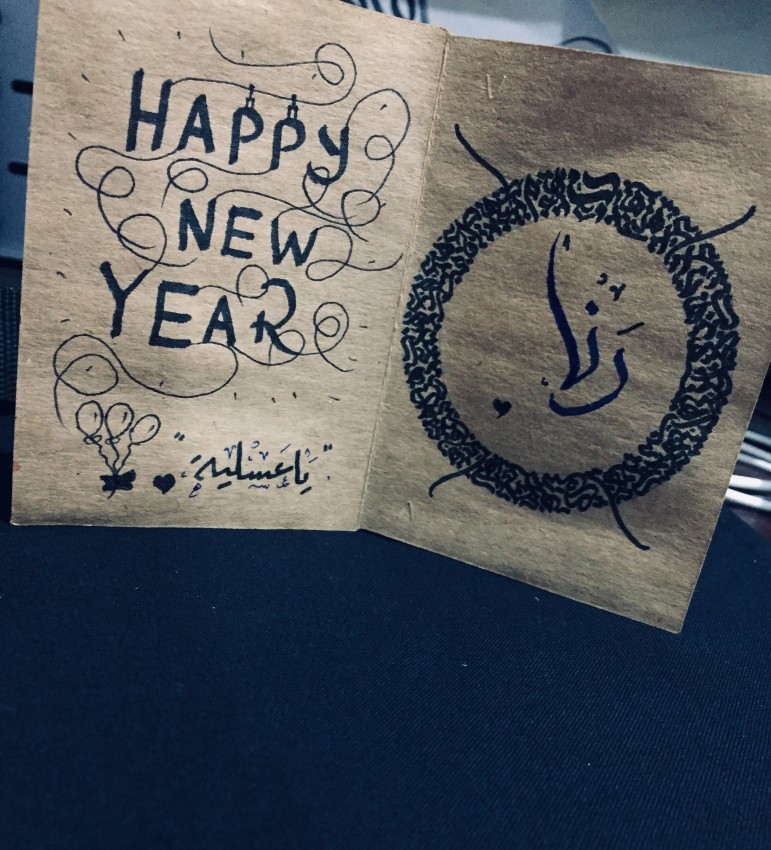 HAPPY
NEW
YEAR
"يَا عَسْلية"
رَنا